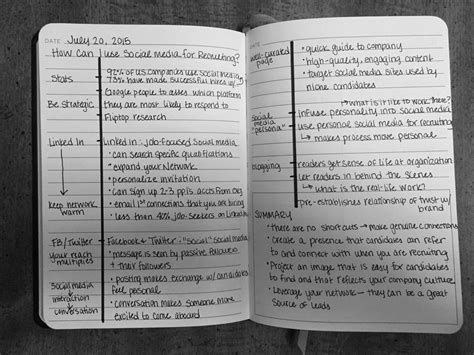 DATE July 20, 2015
How Can I use Social media for Recruiting?
Stats
92% of US companies use social media
73% have made successful hires w/
Be Strategic
Google people to asses which platform
they are most likely to respond to
Fliptop research
Linked In
Linked in: job-focused social media
• can search specific qualifications
• expand your network
• personalize invitation
• can sign up 2-3 ppl's accts from org
keep network
warm
• email 1st connections that you are hiring
• less than 40% job-seekers on LinkedIn
FB/Twitter
Your reach
multiplies
Facebook & Twitter = "social" social media
• message is seen by passive followers
+ their followers
• posting makes exchange w/ candidates
feel personal
social media
interaction
conversation
• Conversation makes someone more
excited to come aboard
DATE
well-curated
page
• quick guide to company
• high-quality, engaging content
• target social media sites used by
niche candidates
what is it like to work there?
social
media
"persona"
infuse personality into social media
use personal social media for recruiting
makes process more personal
blogging
readers get sense of life at organization
let readers in behind the scenes
what is the real-life work?
pre-establishes relationship of trust w/
brand
SUMMARY
• there are no short cuts → make genuine connections
• Create a presence that candidates can refer
to and connect with when you are recruiting
• Project an image that is easy for candidates
to find and that reflects your company culture
• Leverage your network – they can be a great
source of leads